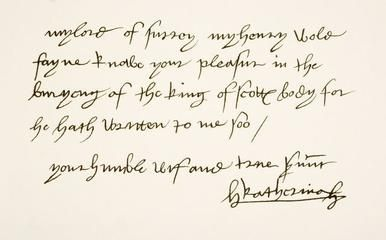 my lord of surrey my henry wold
fayne knowe your pleasur in the
buryeng of the king of scotte body for
he hath written to me soo /
your humble wif and true s'unt
katherina